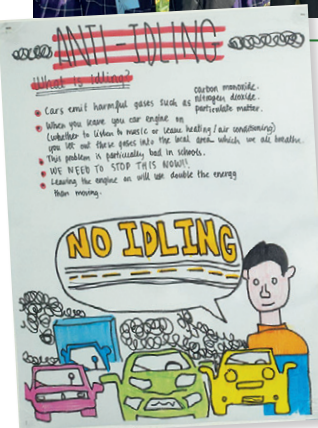 ANTI-IDLING
What is Idling?
Cars emit harmful gases such as carbon monoxide.
nitrogen dioxide.
particulate matter.
When you leave you car engine on
(whether to listen to music or leave heating/air conditioning)
you let out these gases into the local area which we all breathe.
This problem is particularly bad in schools.
WE NEED TO STOP THIS NOW!!.
Leaving the engine on will use double the energy
than moving.
NO IDLING